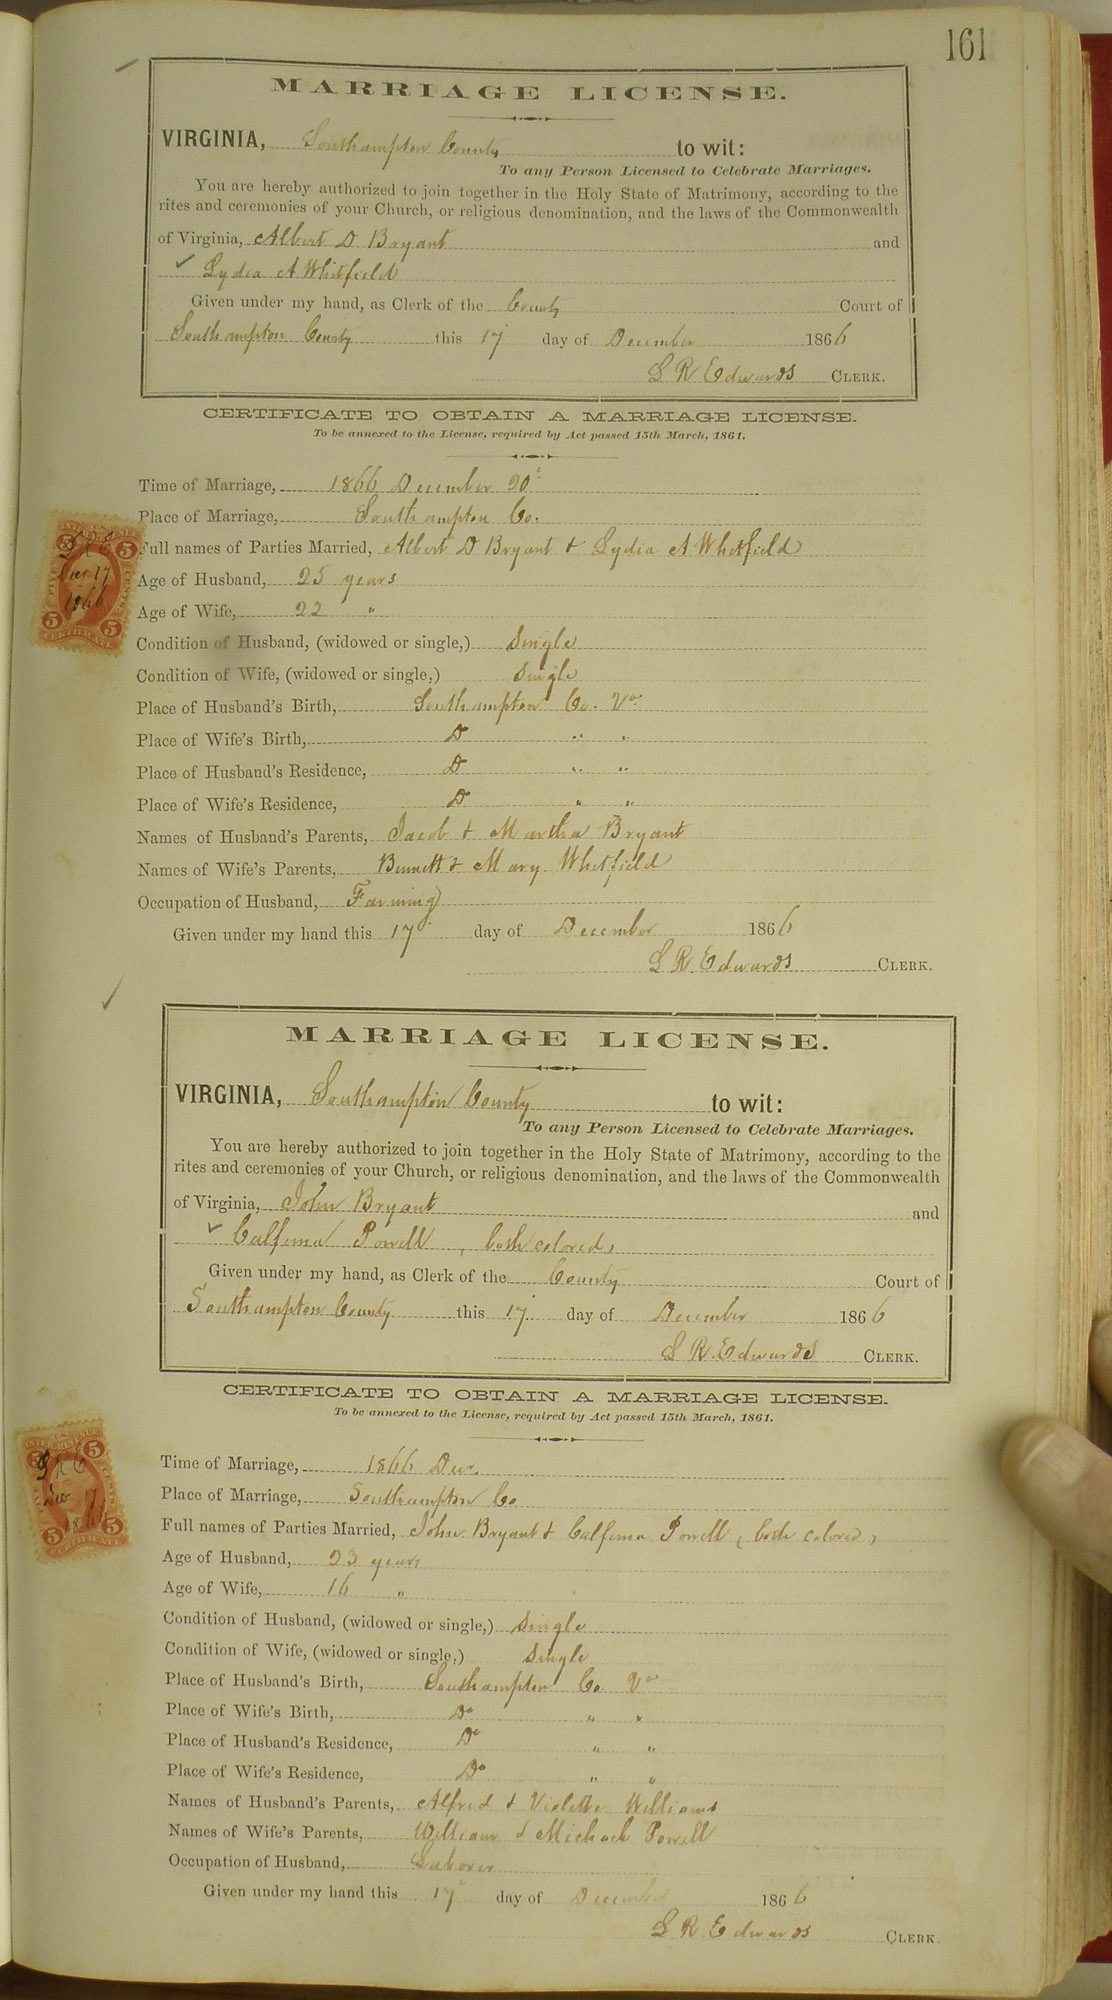 161
MARRIAGE LICENSE.
VIRGINIA, Southampton County to wit:
To any Person Licensed to Celebrate Marriages.
You are hereby authorized to join together in the Holy State of Matrimony, according to the
rites and ceremonies of your Church, or religious denomination, and the laws of the Commonwealth
of Virginia, Albert D Bryant and
Lydia A Whitfield
Given under my hand, as Clerk of the County Court of
Southampton County this 17 day of December 1866
L R Edwards CLERK.
CERTIFICATE TO OBTAIN A MARRIAGE LICENSE.
To be annexed to the License, required by Act passed 15th March, 1861.
Time of Marriage, 1866 December 20
Place of Marriage, Southampton Co.
Full names of Parties Married, Albert D Bryant & Lydia A Whitfield
Age of Husband, 25 years
Age of Wife, 22 "
Condition of Husband, (widowed or single,) Single
Condition of Wife, (widowed or single,) Single
Place of Husband's Birth, Southampton Co. Va
Place of Wife's Birth, D " "
Place of Husband's Residence, D " "
Place of Wife's Residence, D " "
Names of Husband's Parents, Jacob & Martha Bryant
Names of Wife's Parents, Bennett & Mary Whitfield
Occupation of Husband, Farming
Given under my hand this 17 day of December 1866
L R Edwards CLERK.
5 5
Dec 17
1866
5 5
CERTIFICATE
MARRIAGE LICENSE.
VIRGINIA, Southampton County to wit:
To any Person Licensed to Celebrate Marriages.
You are hereby authorized to join together in the Holy State of Matrimony, according to the
rites and ceremonies of your Church, or religious denomination, and the laws of the Commonwealth
of Virginia, John Bryant and
Powell, both colored,
Given under my hand, as Clerk of the County Court of
Southampton County this 17 day of December 1866
L R. Edwards CLERK.
CERTIFICATE TO OBTAIN A MARRIAGE LICENSE.
To be annexed to the License, required by Act passed 15th March, 1861.
Time of Marriage, 1866 Dec.
Place of Marriage, Southampton Co
Full names of Parties Married, John Bryant & Powell (both colored)
Age of Husband, 23 years
Age of Wife, 16 "
Condition of Husband, (widowed or single,) Single
Condition of Wife, (widowed or single,) Single
Place of Husband's Birth, Southampton Co Va
Place of Wife's Birth, Do " "
Place of Husband's Residence, Do " "
Place of Wife's Residence, Do " "
Names of Husband's Parents, Alfred & Violette Williams
Names of Wife's Parents, William & Michael Powell
Occupation of Husband, Laborer
Given under my hand this 17 day of December 1866
L. R. Edwards CLERK.
5 5
Dec 17
1866
5 5
CERTIFICATE